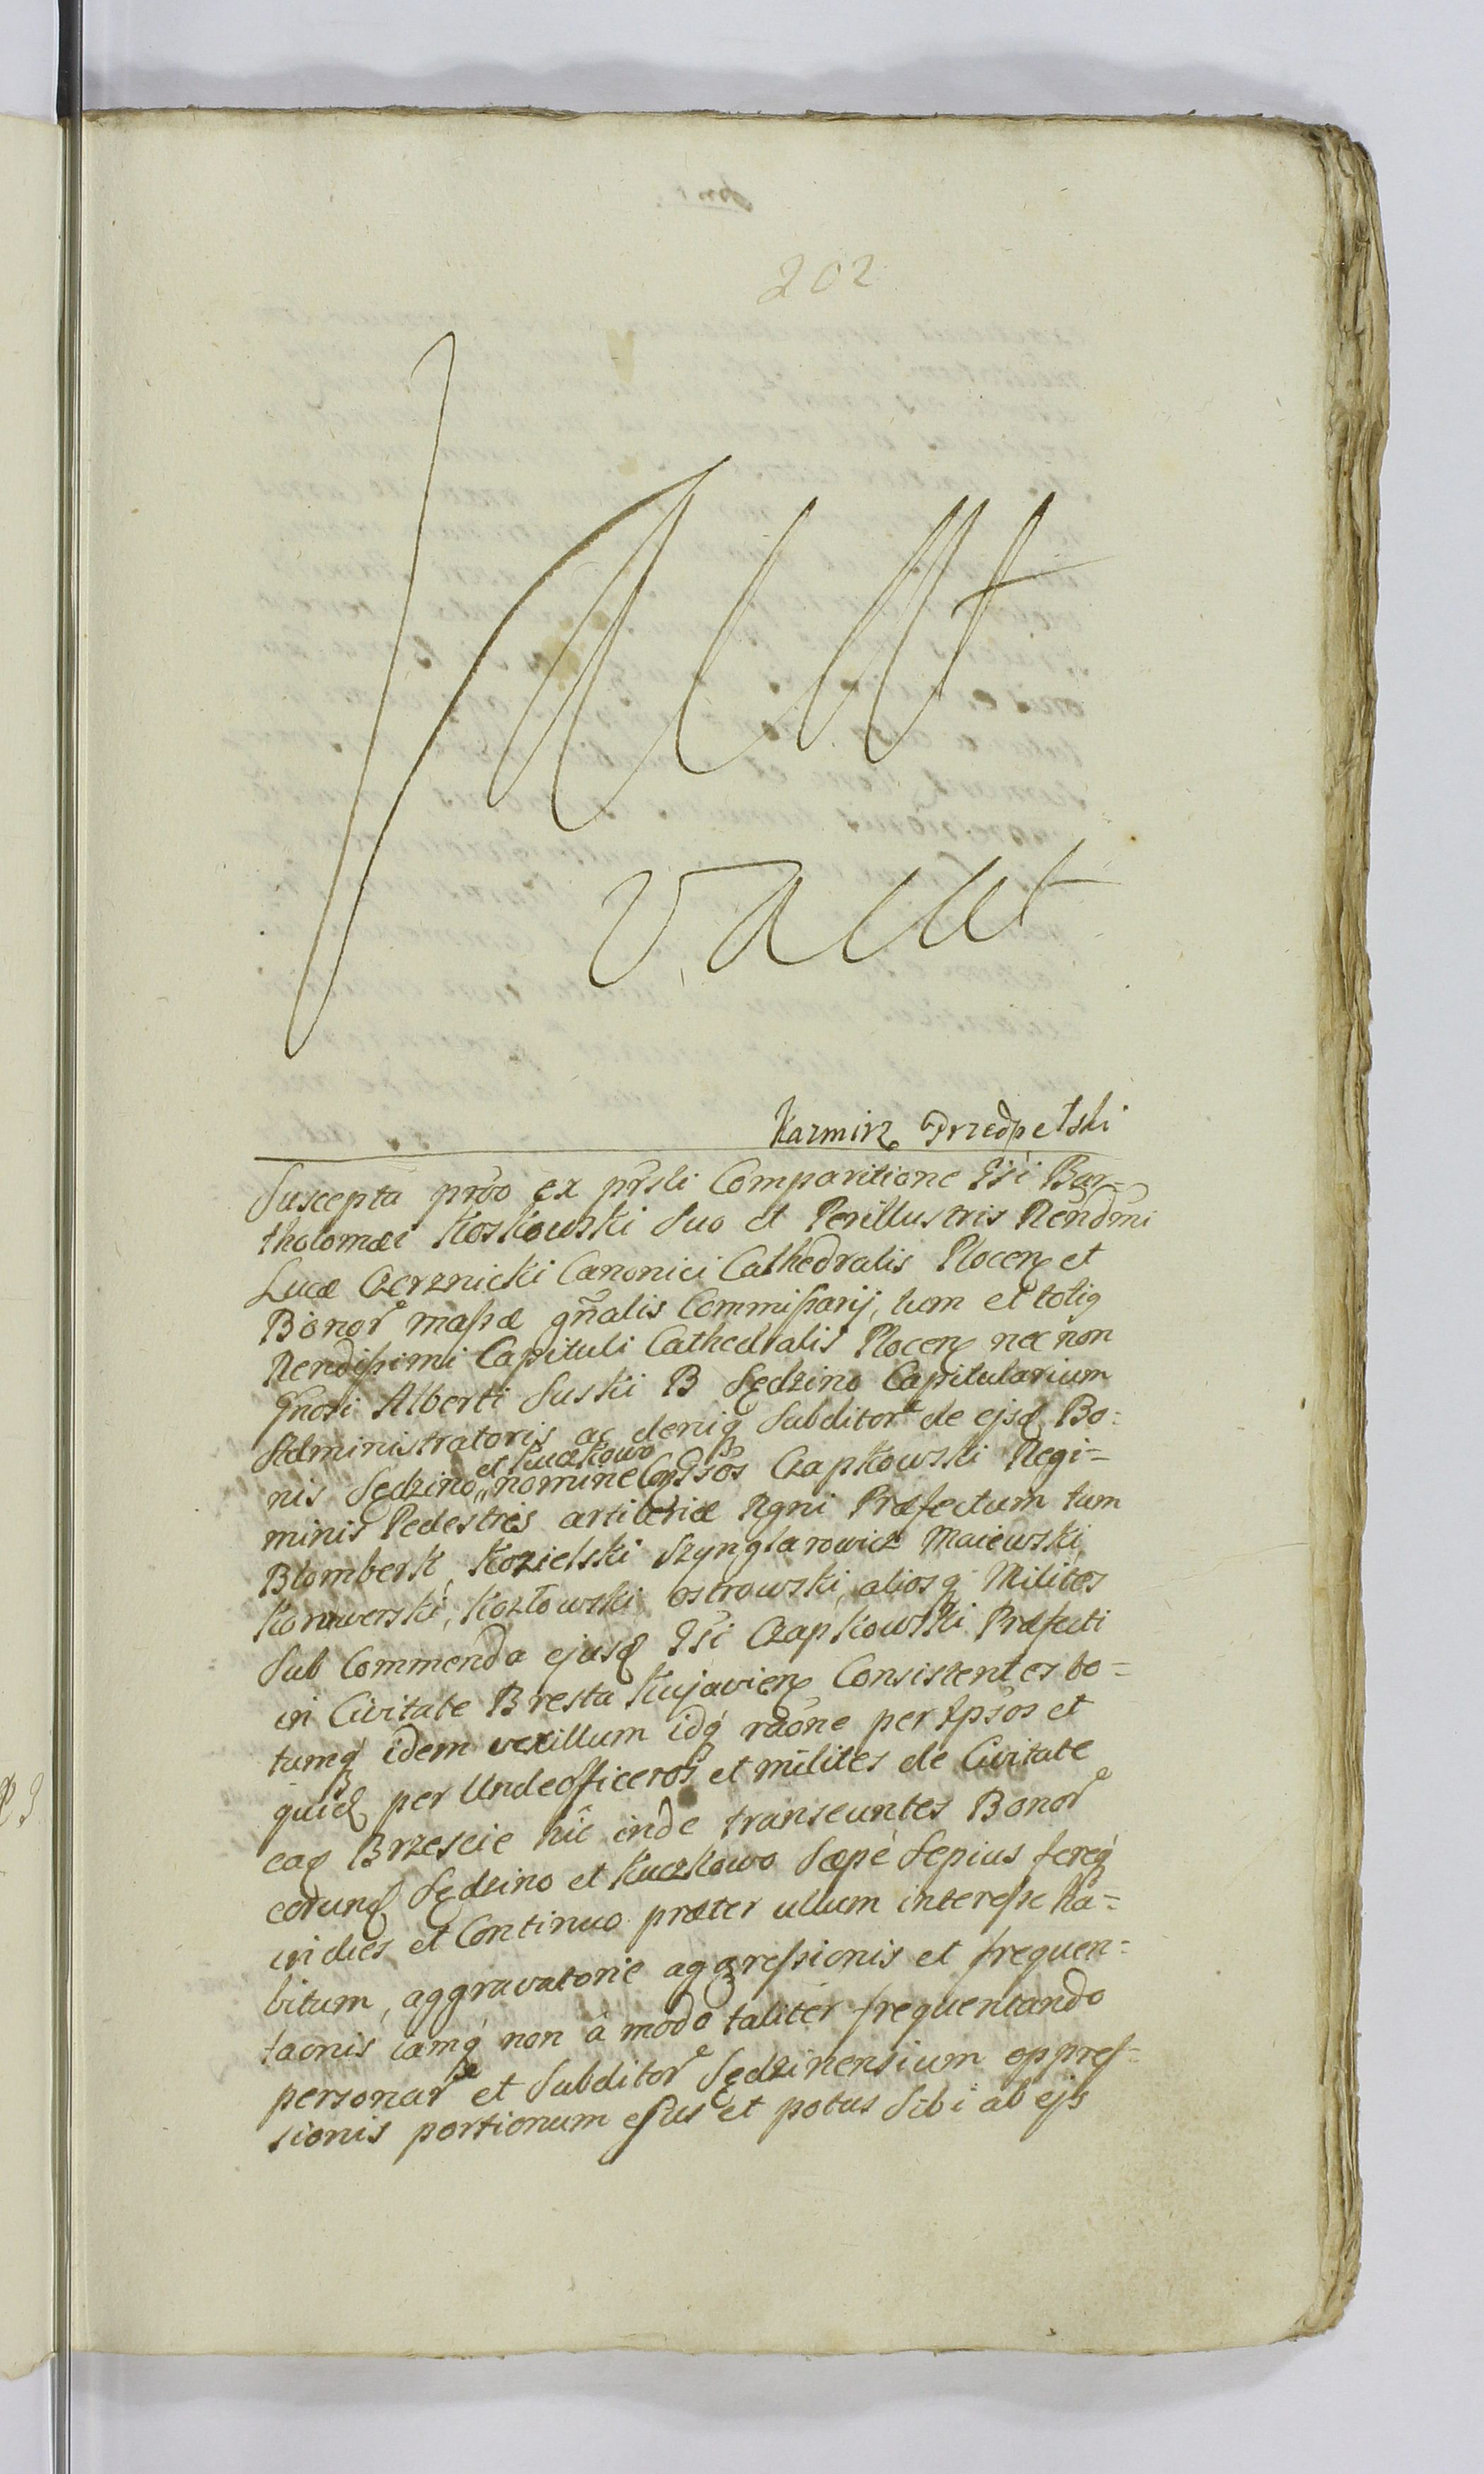 202
Vacat
vacat
Kazmirz Przedpelski
Suscepta prõo ex pr̃sli Comparitione Gsi Bar=
tholomæi Koskowski Suo et Perillustris Rendmi
Lucæ Czerznicki Canonici Cathedralis Plocen et
Bonor massæ gñalis Commissarij, tum et totiq
Rendissimi Capituli Cathedralis Plocen nec non
Gnosi Alberti Suski B Sędzino Capitularium
Administratoris ac deniq Subditor de ejsd Bo=
et Kuczkowo
nis Sędzino nomine Gsos Czapkowski Regi=
minis Pedestris artileriæ Rgni Præfectum tum
Blomberk, Kozielski Szynglarowicz Maiewski,
Korwerski, Kozłowski ostrowski, aliosq Milites
Sub Commenda ejusd Gsi Czapkowski Præfecti
in Civitate Bresta Kujavien Consistentes to=
tumq idem vexillum idq raõne per Ipsos et
quid per Undeofficeros et milites de Civitate
ead Brzescie hic inde transeuntes Bonor
eorund Sędzino et Kuczkowo Sæpè Sepius fereq
in dies et Continuo præter ullum interesse ha=
bitum, aggravatorie aggressionis et frequen=
taonis iamq non à modo taliter frequentando
personar et Subditor Sędzinensium oppres=
sionis portionum esus et potus Sibi ab ejs